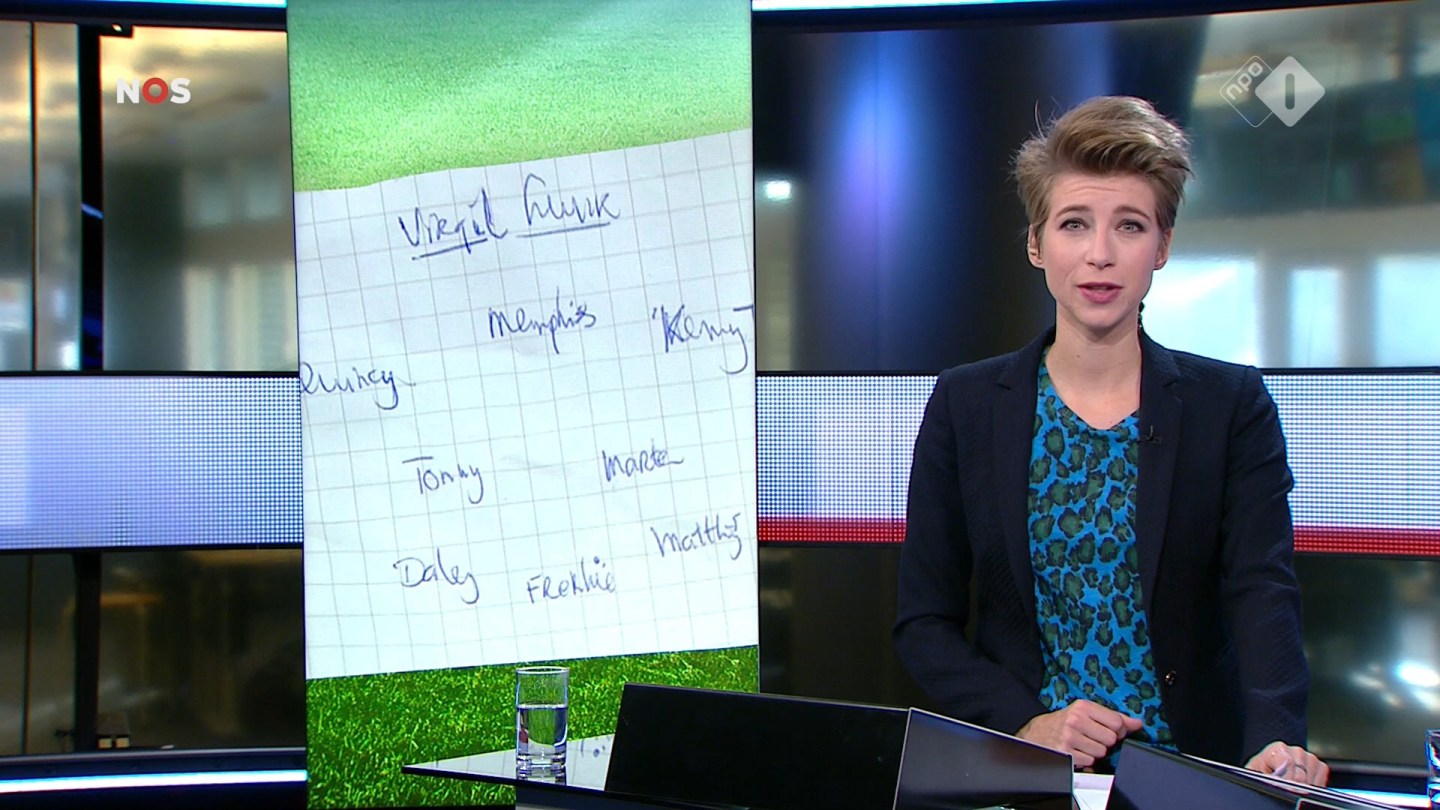 NOS
npo 1
Virgil Luuk
Memphis 'Kenny'
Quincy
Tonny Marten
Matthijs
Daley Frenkie